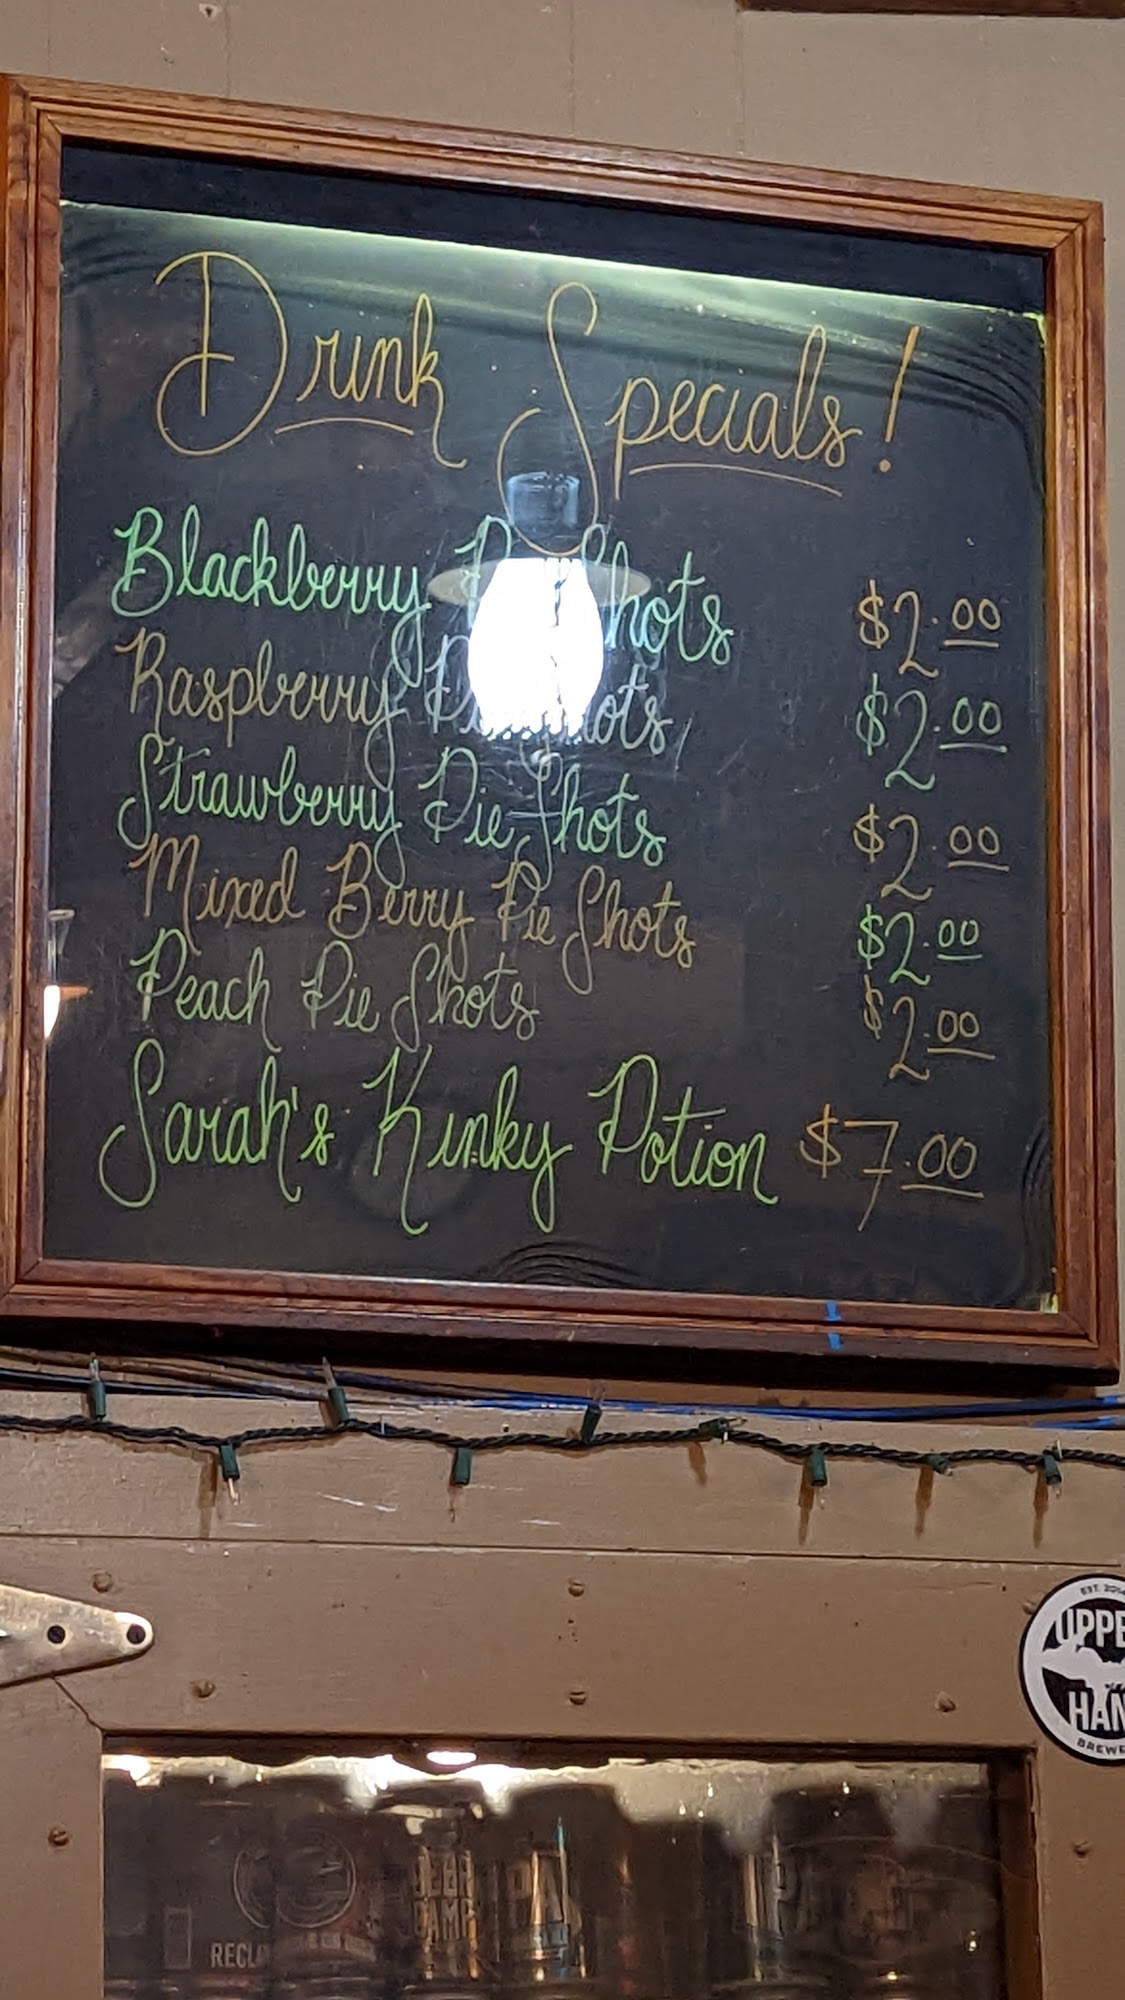 Drink Specials!
Blackberry Shots $2.00
Raspberry $2.00
Strawberry Pie Shots $2.00
Mixed Berry Pie Shots $2.00
Peach Pie Shots $2.00
Sarah's Kinky Potion $7.00
EST.
HAN
BEER
CAMP